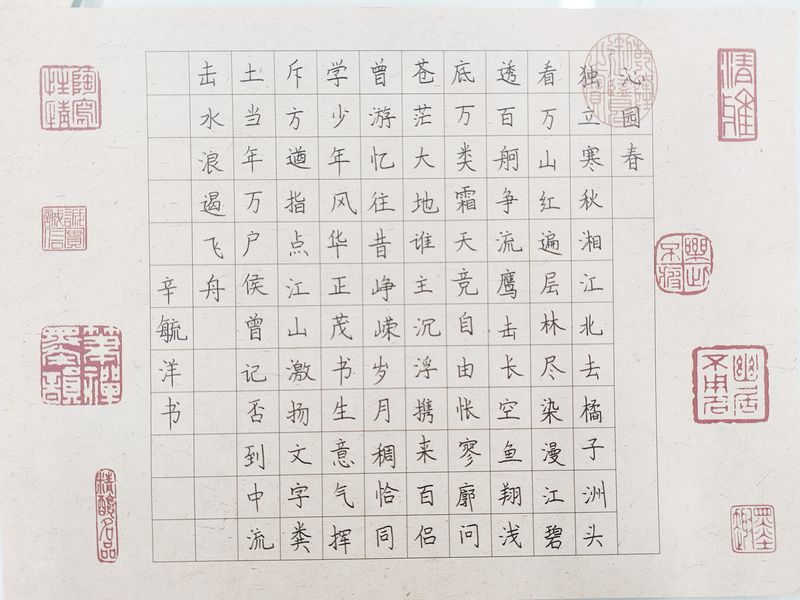 沁园春
独立寒秋湘江北去橘子洲头
看万山红遍层林尽染漫江碧
透百舸争流鹰击长空鱼翔浅
底万类霜天竞自由怅寥廓问
苍茫大地谁主沉浮携来百侣
曾游忆往昔峥嵘岁月稠恰同
学少年风华正茂书生意气挥
斥方遒指点江山激扬文字粪
土当年万户侯曾记否到中流
击水浪遏飞舟
辛毓洋书
清雅
精釀名品